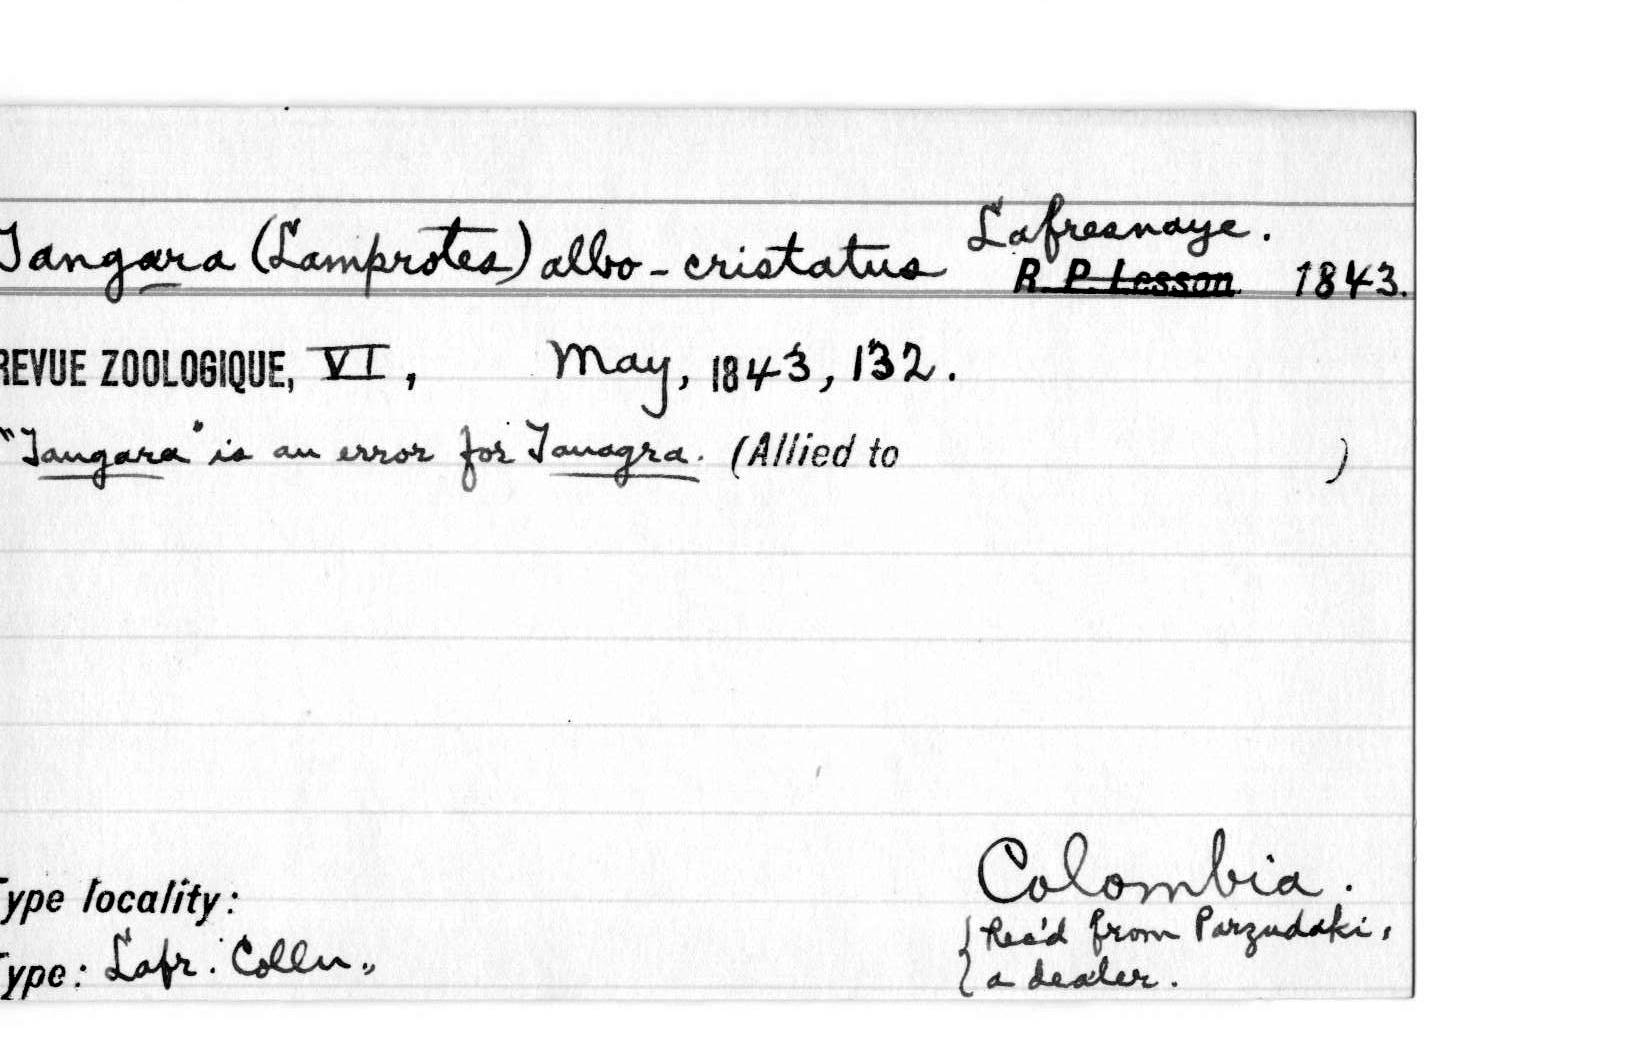 Tangara (Lamprotes) albo-cristatus Lafresnaye.
R. P. Lesson 1843.
REVUE ZOOLOGIQUE, VI, May, 1843, 132.
"Tangara" is an error for Tanagra. (Allied to )
Type locality: Colombia.
Rec'd from Parzudaki,
Type: Lafr. Colln.,
a dealer.